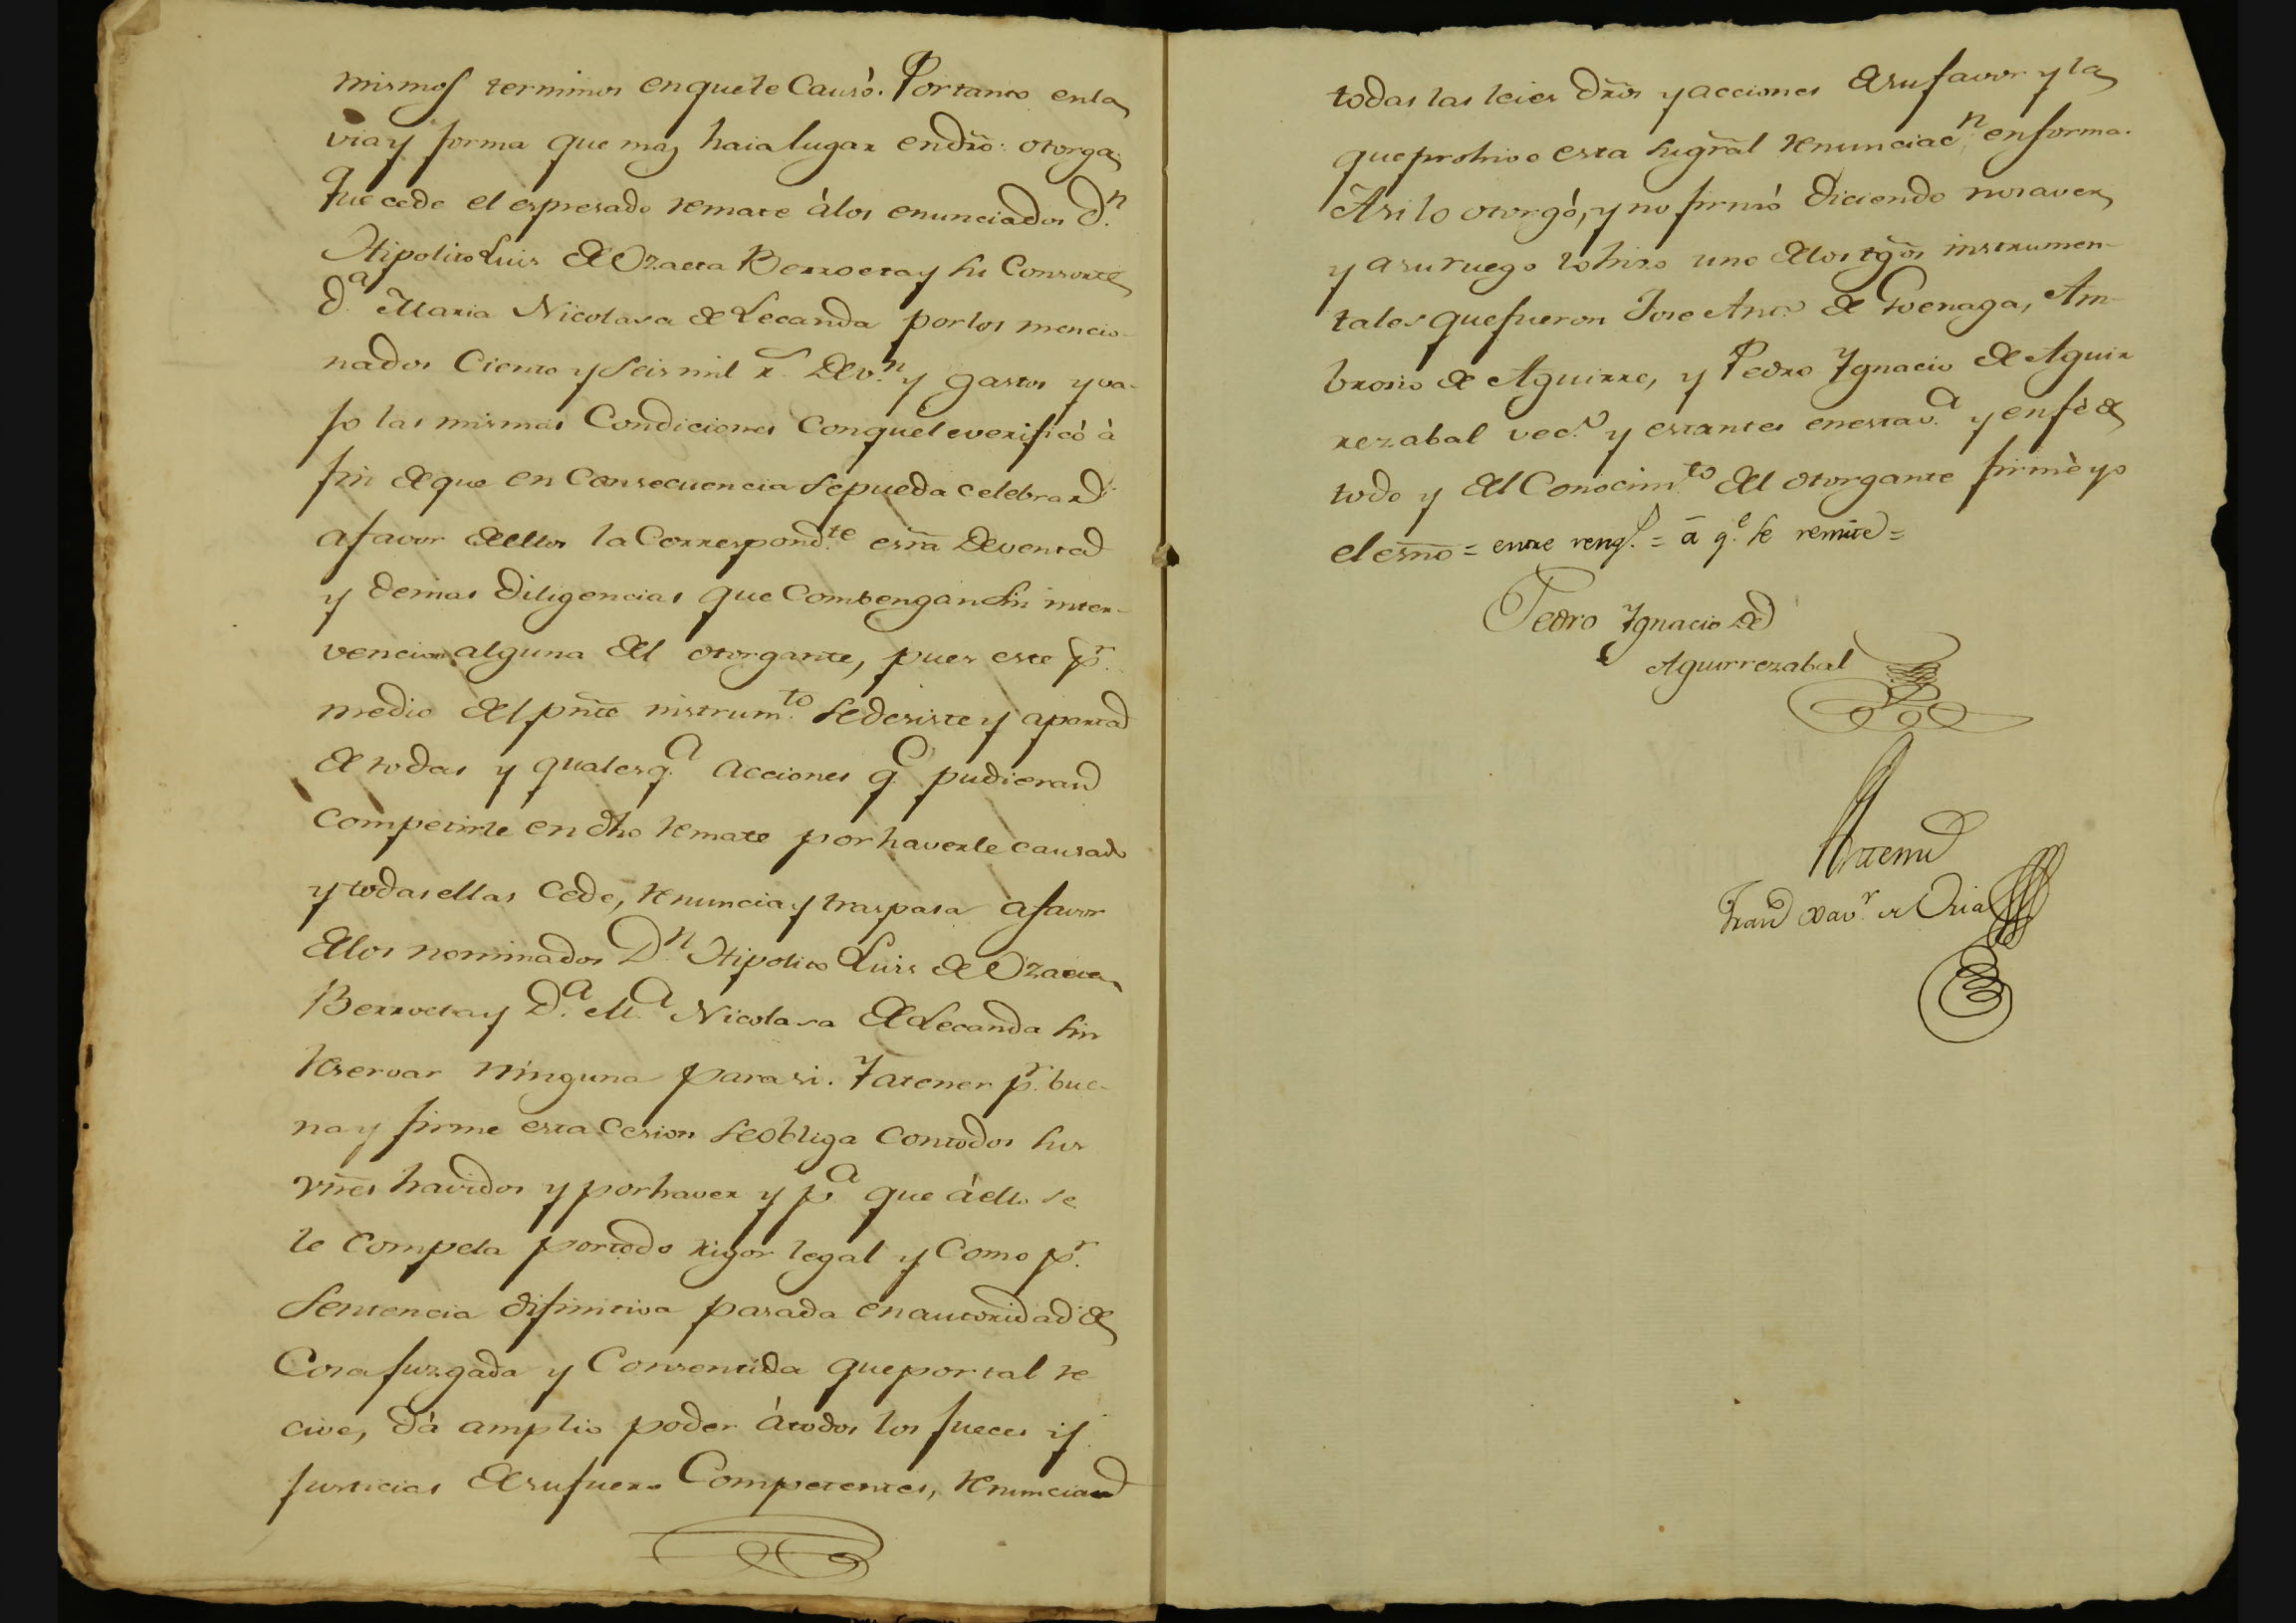 mismos terminos en que le Causó. Por tanto en la
via y forma que mas haia lugar en dr̃o: otorga
que cede el espresado remate à los enunciados D.n
Hipolito Luis de Ozaeta Berroeta y su Consorte
D.a Maria Nicolasa de Lecanda por los mencio-
nados Ciento y seis mil r.s de v.n y gastos y va-
jo las mismas Condiciones con que se verificò à
fin de que en Consecuencia se pueda celebrar
a favor de ellos la Correspond.te esr̃a de venta
y demas diligencias que Combengan sin inter-
vencion alguna del otorgante, pues este p.r
medio del pñte instrum.to se desiste y aparta
de todas y qualesq.a acciones q.e pudieran
competirle en dho remate por haverle causado
y todas ellas cede, renuncia y traspasa a favor
de los nominados D.n Hipolito Luis de Ozaeta
Berroeta y D.a M.a Nicolasa de Lecanda sin
reservar ninguna para si. Y a tener p.r bue-
na y firme esta cesion se obliga con todos sus
vñes havidos y por haver y p.a que à ello se
le compela por todo rigor legal y como p.r
Sentencia difinitiva pasada en autoridad de
Cosa juzgada y Consentida que por tal re
cive, dà amplio poder à todos los jueces y
justicias de su fuero Competentes, renuncian
todas las leies dr̃os y acciones de su favor y la
que prohive esta su gr̃al renunciac.n en forma.
Asi lo otorgò, y no firmò diciendo no saver
y a su ruego lo hizo uno de los tgõs instrumen-
tales que fueron Jose Ant.o de Goenaga, Am-
brosio de Aguirre, y Pedro Ygnacio de Aguir
rezabal vec.s y estantes en esta v.a y en fè de
todo y del Conocim.to del otorgante firmè yo
el esñno = entre reng.s = à q.e se remite =
Pedro Ygnacio de
Aguirrezabal
Ante mi
Fran.co Xav.r de Oria